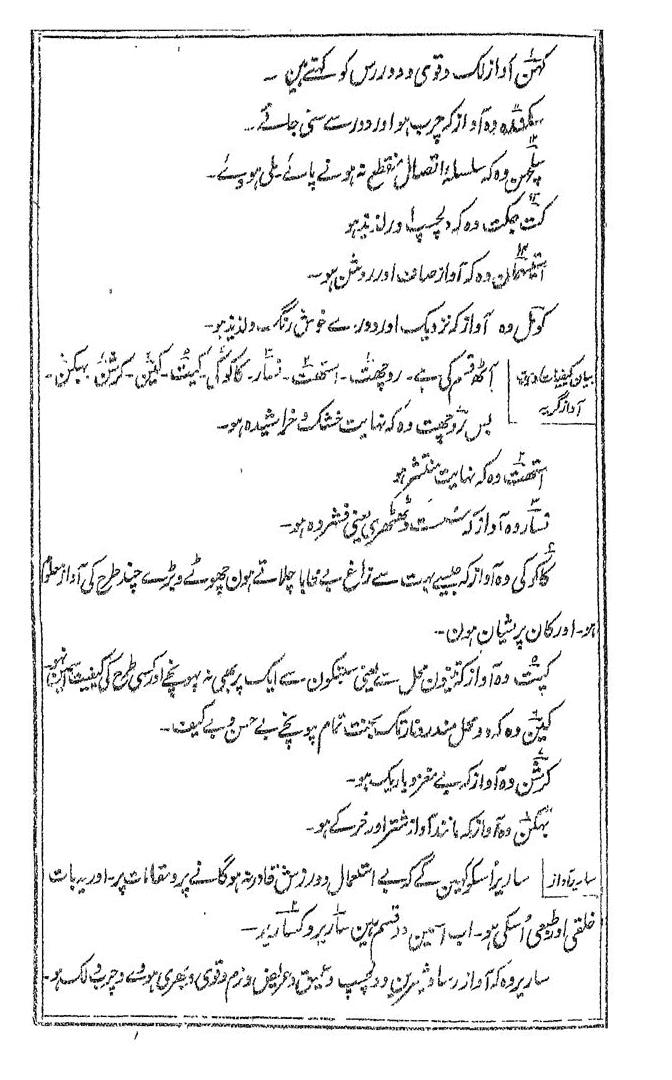 کہٹن آواز لک وقوی ودور رس کو کہتے ہین ۔
وہ آواز کہ چرب ہو اور دور سے سنی جائے ۔
وہ کہ سلسلۂ اتصال منقطع نہ ہونے پائے ۔ ملی ہوئے ۔
وہ کہ دلچسپ اور لذیذ ہو
وہ کہ آواز صاف اور روشن ہو ۔
کوئل وہ آواز کہ نزدیک اور دور سے خوش رنگ ۔ ولذیذ ہو ۔
بیان کیفیات
آواز کریہ
آٹھ قسم کی ہے ۔ روچھت ۔ استھت ۔ نسار ۔ کاکوکی ۔ کیٹ ۔ کین ۔ کرشن بہکن ۔
بس روچھت وہ کہ نہایت خشک وخراشیدہ ہو ۔
استھت وہ کہ نہایت منتشر ہو
نسار وہ آواز کہ سست وٹھٹھری یعنی فشردہ ہو ۔
کاکوکی وہ آواز کہ جیسے بہت سے زاغ بے محابا چلاتے ہون چھوٹے وبڑے چند طرح کی آواز معلوم
ہو ۔ اور کان پریشان ہون ۔
کیٹ وہ آواز کہ تینون محل سے یعنی سپتکون سے ایک پر بھی نہ پہونچے اور کسی طرح کی کیفیت اسمین نہو
کین وہ کہ دو محل مندر وتار تک بمحنت تمام پہونچے بے حسن وبے کیف ۔
کرشن وہ آواز کہ بے مغز وباریک ہو ۔
بہکن وہ آواز کہ مانند آواز شتر اور خر کے ہو ۔
ساریر آواز
ساریر اُسکو کہین گے کہ بے استعمال وورزش قادر نہ ہو گانے پر ومقامات پر ۔ اور یہ بات
خلقی اور طبعی اُسکی ہو ۔ اب اسمین دو قسم ہین ساریر وکساریر ۔
ساریر وہ کہ آواز رسا وشیرین ودلچسپ وعمیق وعریض ونرم وقوی وبھری ہوئے وچرب لک ہو ۔